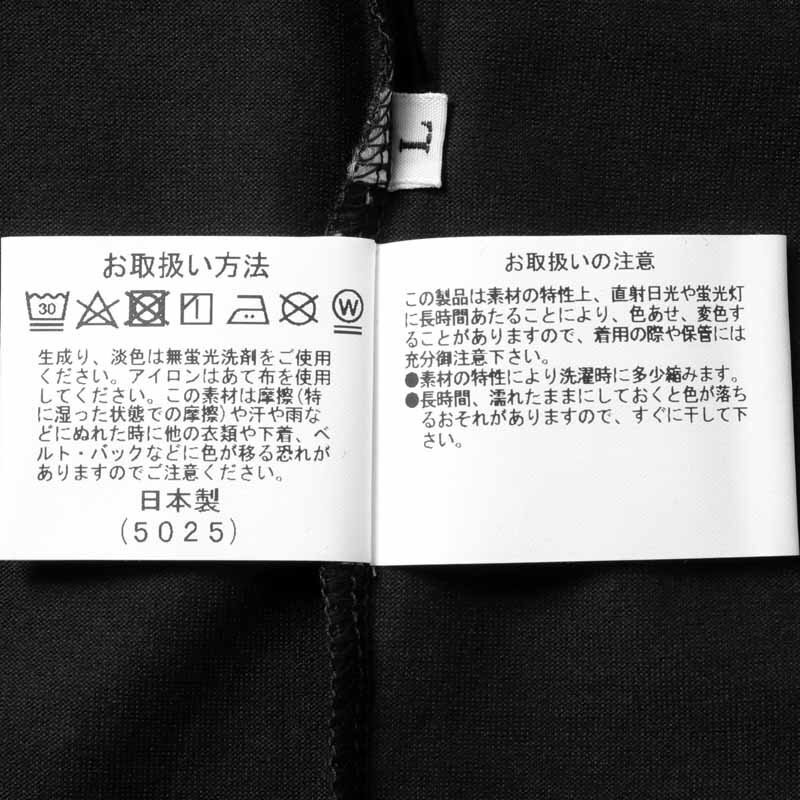 L
お取扱い方法
30
W
生成り、淡色は無蛍光洗剤をご使用
ください。アイロンはあて布を使用
してください。この素材は摩擦(特
に湿った状態での摩擦)や汗や雨な
どにぬれた時に他の衣類や下着、ベ
ルト・バックなどに色が移る恐れが
ありますのでご注意ください。
日本製
(5025)
お取扱いの注意
この製品は素材の特性上、直射日光や蛍光灯
に長時間あたることにより、色あせ、変色す
ることがありますので、着用の際や保管には
充分御注意下さい。
●素材の特性により洗濯時に多少縮みます。
●長時間、濡れたままにしておくと色が落ち
るおそれがありますので、すぐに干して下
さい。